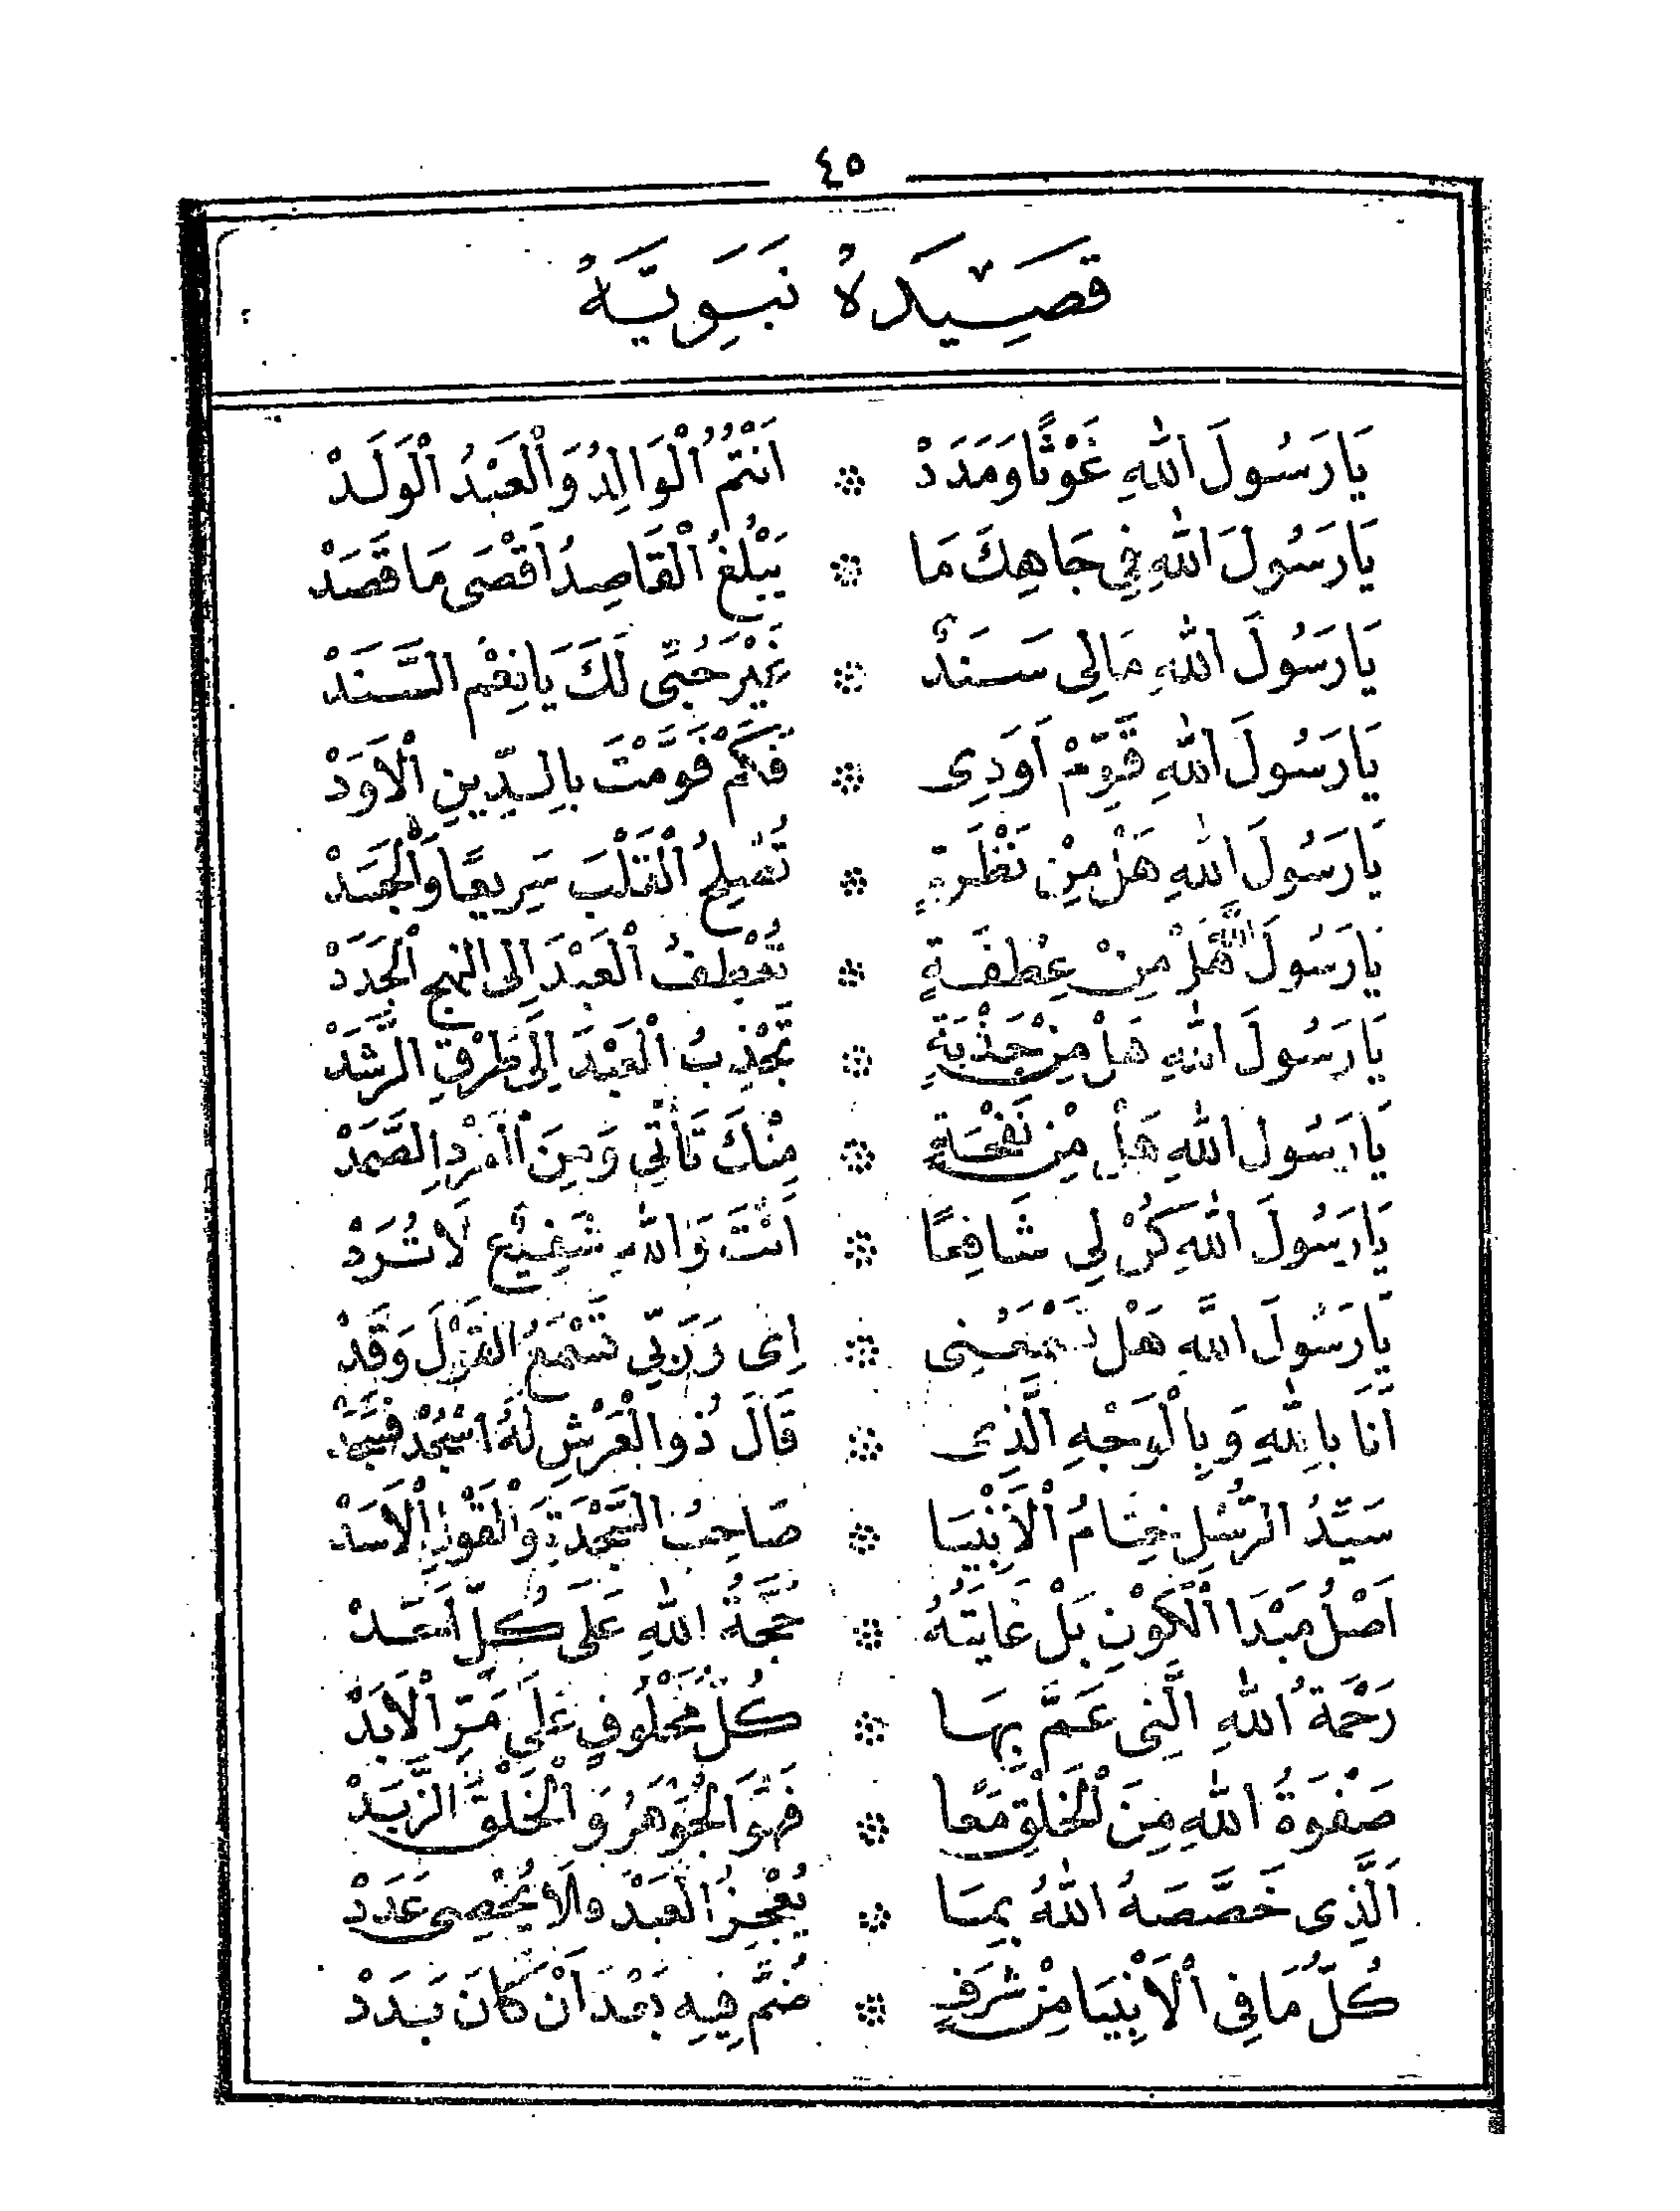 ٤٥
قَصِيدَةٌ نَبَوِيَّةٌ
يَا رَسُولَ اللهِ غَوْثًا وَمَدَدْ ۞ اَنْتُمُ الْوَالِدُ وَالْعَبْدُ الْوَلَدْ
يَا رَسُولَ اللهِ فِي جَاهِكَ مَا ۞ يَبْلُغُ الْقَاصِدُ اَقْصَى مَا قَصَدْ
يَا رَسُولَ اللهِ مَالِى سَنَدٌ ۞ غَيْرَ حُبِّى لَكَ يَا نِعْمَ السَّنَدْ
يَا رَسُولَ اللهِ قَوِّمْ اَوَدِى ۞ فَكَمْ قَوَّمْتَ بِالدِّينِ الْاَوَدْ
يَا رَسُولَ اللهِ هَلْ مِنْ نَظْرَةٍ ۞ تُصْلِحُ الْقَلْبَ سَرِيعًا وَالْجَسَدْ
يَا رَسُولَ اللهِ هَلْ مِنْ عِطْفَةٍ ۞ تُعْطِفُ الْعَبْدَ اِلى النهج الْجَدَدْ
يَا رَسُولَ اللهِ هَلْ مِنْ جَذْبَةٍ ۞ تَجْذِبُ الْعَبْدَ اِلَى طُرْقِ الرَّشَدْ
يَا رَسُول اللهِ هَلْ مِنْ نَفْحَةٍ ۞ مِنْكَ تَأْتِي وَمِنَ الْفَرْدِ الصَّمَدْ
يَا رَسُولَ اللهِ كُنْ لِي شَافِعًا ۞ اَنْتَ وَاللهِ شَفِيعٌ لَا تُرَدْ
يَا رَسُولَ اللهِ هَلْ تَسْمَعُنِى ۞ اِى وَرَبِّي تَسْمَعُ الْقَوْلَ وَقَدْ
اَنَا بِاللهِ وَبِالْوَجْهِ الَّذِى ۞ قَالَ ذُو الْعَرْشِ لَهُ اسْجُدْ فَسَجَدْ
سَيِّدُ الرُّسْلِ خِتَامُ الْاَنْبِيَا ۞ صَاحِبُ النَّجْدَةِ وَالْقَوْلِ الْاَسَدْ
اَصْلُ مَبْدَا الْكَوْنِ بَلْ غَايَتُهُ ۞ حُجَّةُ اللهِ عَلَى كُلِّ اَحَدْ
رَحْمَةُ اللهِ الَّتِى عَمَّ بِهَا ۞ كُلَّ مَخْلُوقٍ عَلَى مَرِّ الْاَبَدْ
صَفْوَةُ اللهِ مِنَ الْخَلْقِ مَعًا ۞ فَهْوَ الْجَوْهَرُ وَالْخَلْقُ الزَّبَدْ
اَلَّذِى خَصَّصَهُ اللهُ بِمَا ۞ يُعْجِزُ الْعَبْدُ وَلَا يُحْصِى عَدَدْ
كُلُّ مَا فِى الْاَنْبِيَا مِنْ شَرَفٍ ۞ ضُمَّ فِيهِ بَعْدَ اَنْ كَانَ بَدَدْ